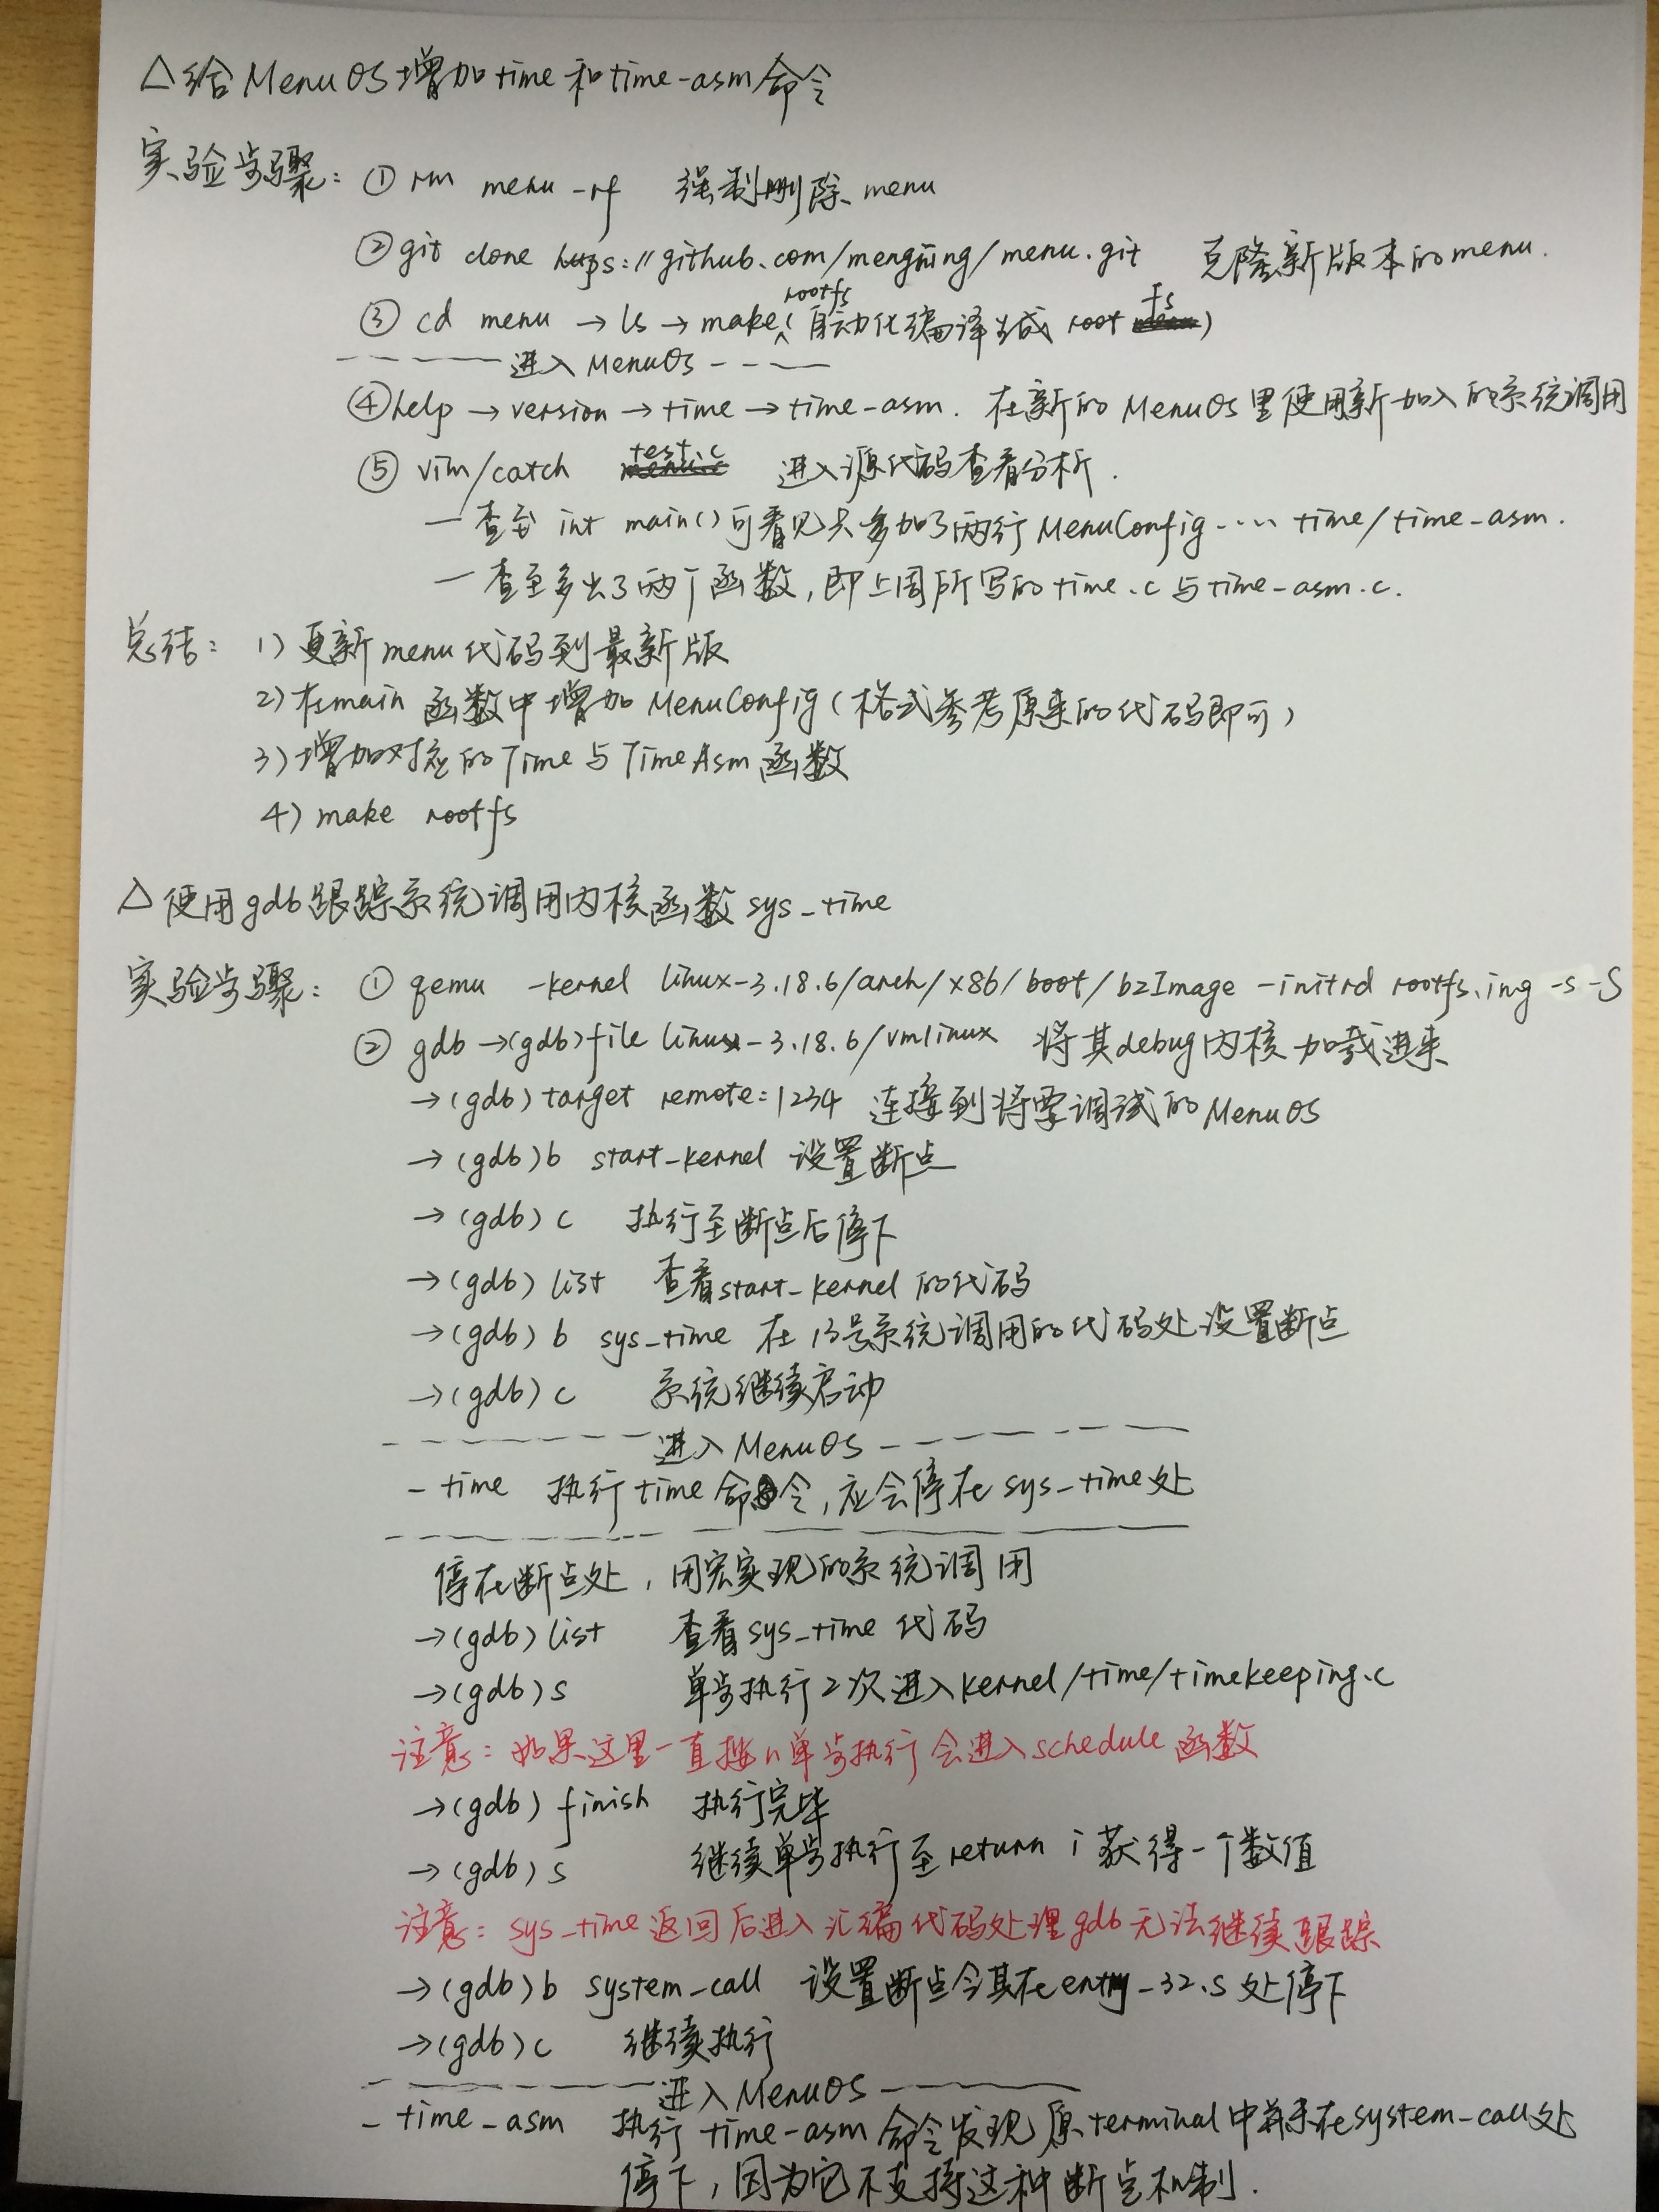 △给MenuOS增加time和time-asm命令
实验步骤：① rm menu -rf 强制删除menu
②git clone https://github.com/mengning/menu.git 克隆新版本的menu.
③ cd menu → ls → make rootfs (自动化编译生成 root fs)
------进入MenuOS----
④help → version → time → time-asm. 在新的MenuOS里使用新加入的系统调用
⑤ vim/catch test.c 进入源代码查看分析.
— 查至 int main()可看见只多加了两行MenuConfig···· time/time-asm.
— 查至多出了两个函数,即上周所写的time.c与time-asm.c.
总结：1) 更新menu代码到最新版
2)在main 函数中增加MenuConfig(格式参考原来的代码即可)
3)增加对应的Time与TimeAsm函数
4) make rootfs
△使用gdb跟踪系统调用内核函数sys_time
实验步骤：① qemu -kernel linux-3.18.6/arch/x86/boot/bzImage -initrd rootfs.img -s -S
② gdb →(gdb)file linux-3.18.6/vmlinux 将其debug内核加载进来
→(gdb) target remote:1234 连接到将要调试的MenuOS
→(gdb)b start_kernel 设置断点
→(gdb) c 执行至断点后停下
→(gdb) list 查看start_kernel的代码
→(gdb) b sys_time 在13号系统调用的代码处设置断点
→(gdb) c 系统继续启动
--------进入MenuOS--------
- time 执行time命令,应会停在sys_time处
停在断点处,用宏实现的系统调用
→(gdb) list 查看sys_time代码
→(gdb) s 单步执行2次进入kernel/time/timekeeping.c
注意：如果这里一直按n单步执行会进入schedule函数
→(gdb) finish 执行完毕
→(gdb) s 继续单步执行至return i获得一个数值
注意：sys_time返回后进入汇编代码处理gdb无法继续跟踪
→(gdb)b system_call 设置断点令其在entry_32.S处停下
→(gdb)c 继续执行
--------进入MenuOS------
- time-asm 执行time-asm命令发现原terminal中并未在system_call处
停下,因为它不支持这种断点机制.